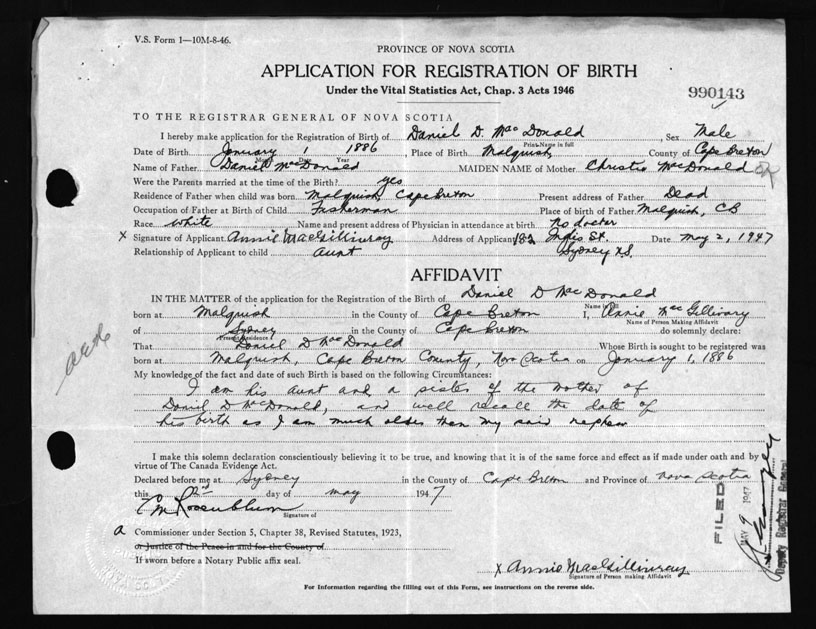 V.S. Form 1—10M-8-46.
PROVINCE OF NOVA SCOTIA
APPLICATION FOR REGISTRATION OF BIRTH
Under the Vital Statistics Act, Chap. 3 Acts 1946
990143
TO THE REGISTRAR GENERAL OF NOVA SCOTIA
I hereby make application for the Registration of Birth of Daniel D. MacDonald, Sex Male
Print Name in full
Date of Birth January 1 1886, Place of Birth Malquish, County of Cape Breton
Month Date Year
Name of Father Daniel McDonald MAIDEN NAME of Mother Christie McDonald
Were the Parents married at the time of the Birth? yes
Residence of Father when child was born Malquish, Cape Breton Present address of Father Dead
Occupation of Father at Birth of Child Fisherman Place of birth of Father Malquish, CB
Race White Name and present address of Physician in attendance at birth no doctor
X Signature of Applicant Annie MacGillivray Address of Applicant 182 Inglis St. Date May 2, 1947
Relationship of Applicant to child aunt Sydney N.S.
AFFIDAVIT
IN THE MATTER of the application for the Registration of the Birth of Daniel D McDonald
Name in full
born at Malquish in the County of Cape Breton I, Annie MacGillivary
Name of Person Making Affidavit
of Sydney in the County of Cape Breton do solemnly declare:
Present Residence
That Daniel D MacDonald Whose Birth is sought to be registered was
born at Malquish, Cape Breton County, Nova Scotia on January 1, 1886
My knowledge of the fact and date of such Birth is based on the following Circumstances:
I am his aunt and a sister of the mother of
Daniel D McDonald, and well recall the date of
his birth as I am much older than my said nephew
I make this solemn declaration conscientiously believing it to be true, and knowing that it is of the same force and effect as if made under oath and by
virtue of The Canada Evidence Act.
Declared before me at Sydney in the County of Cape Breton and Province of Nova Scotia
this 2nd day of May 1947
C M Rosenblum
Signature of
a Commissioner under Section 5, Chapter 38, Revised Statutes, 1923,
or Justice of the Peace in and for the County of
If sworn before a Notary Public affix seal.
X Annie MacGillivray
Signature of Person making Affidavit
For Information regarding the filling out of this Form, see instructions on the reverse side.
FILED
MAY 9 1947
Deputy Registrar General